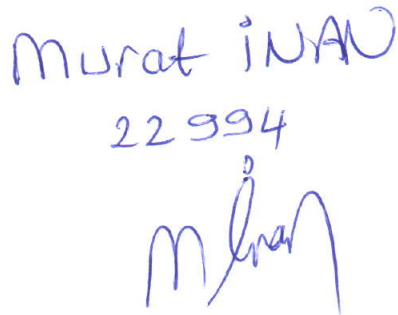 Murat İNAN
22994
M İnan